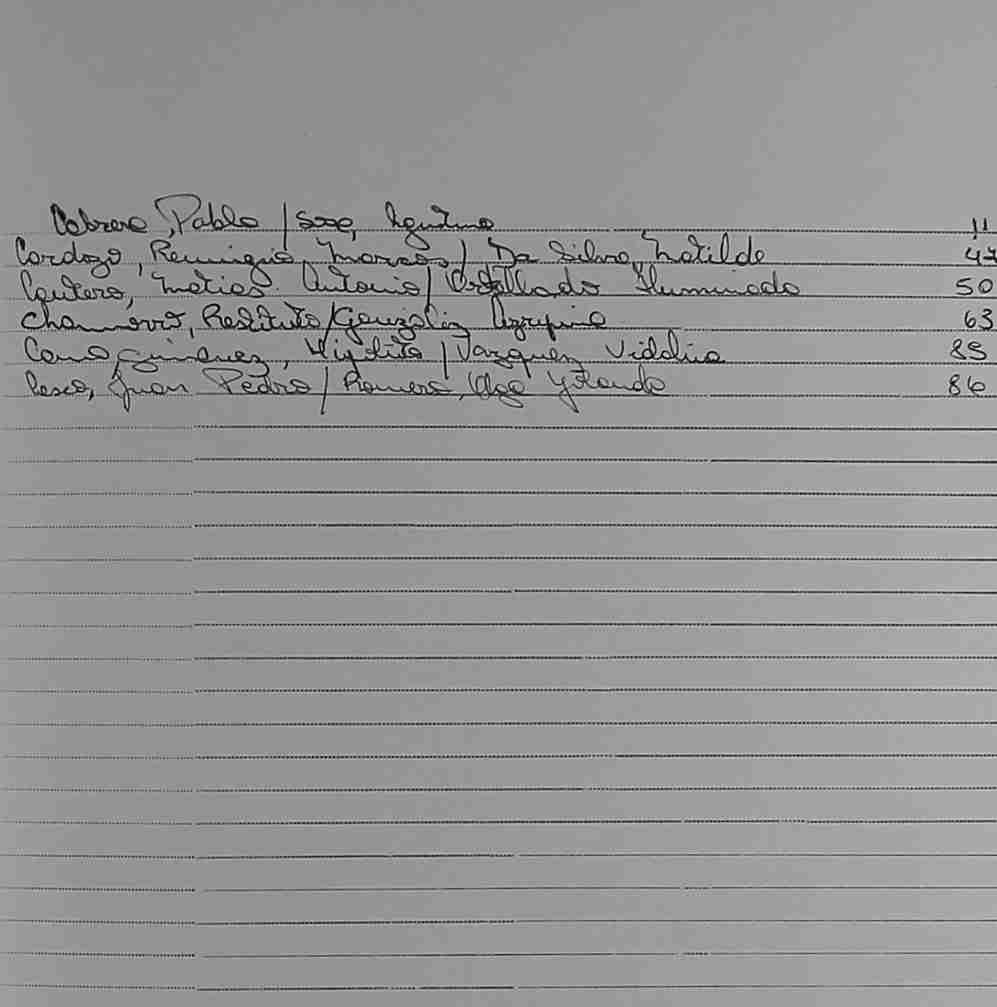 Cabrera, Pablo / Sosa, Agustina 11
Cardozo, Remigio Marcos / Da Silva, Matilde 47
Cantero, Matias Antonio / Iluminada 50
Chamorro, Restituto / González Agripina 63
Cano Gimenez, / Vazquez 85
Juan Pedro / Romero, Olga Yolanda 86